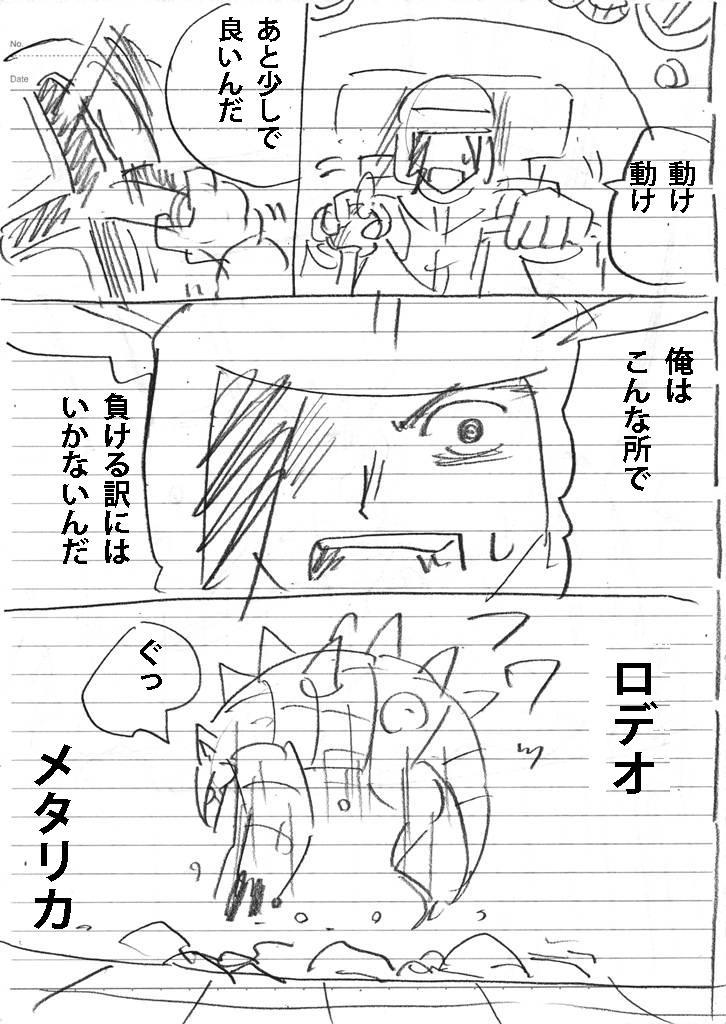 動け
動け
あと少しで
良いんだ
俺は
こんな所で
負ける訳には
いかないんだ
ロデオ
フワッ
ぐっ
メタリカ
No.
Date